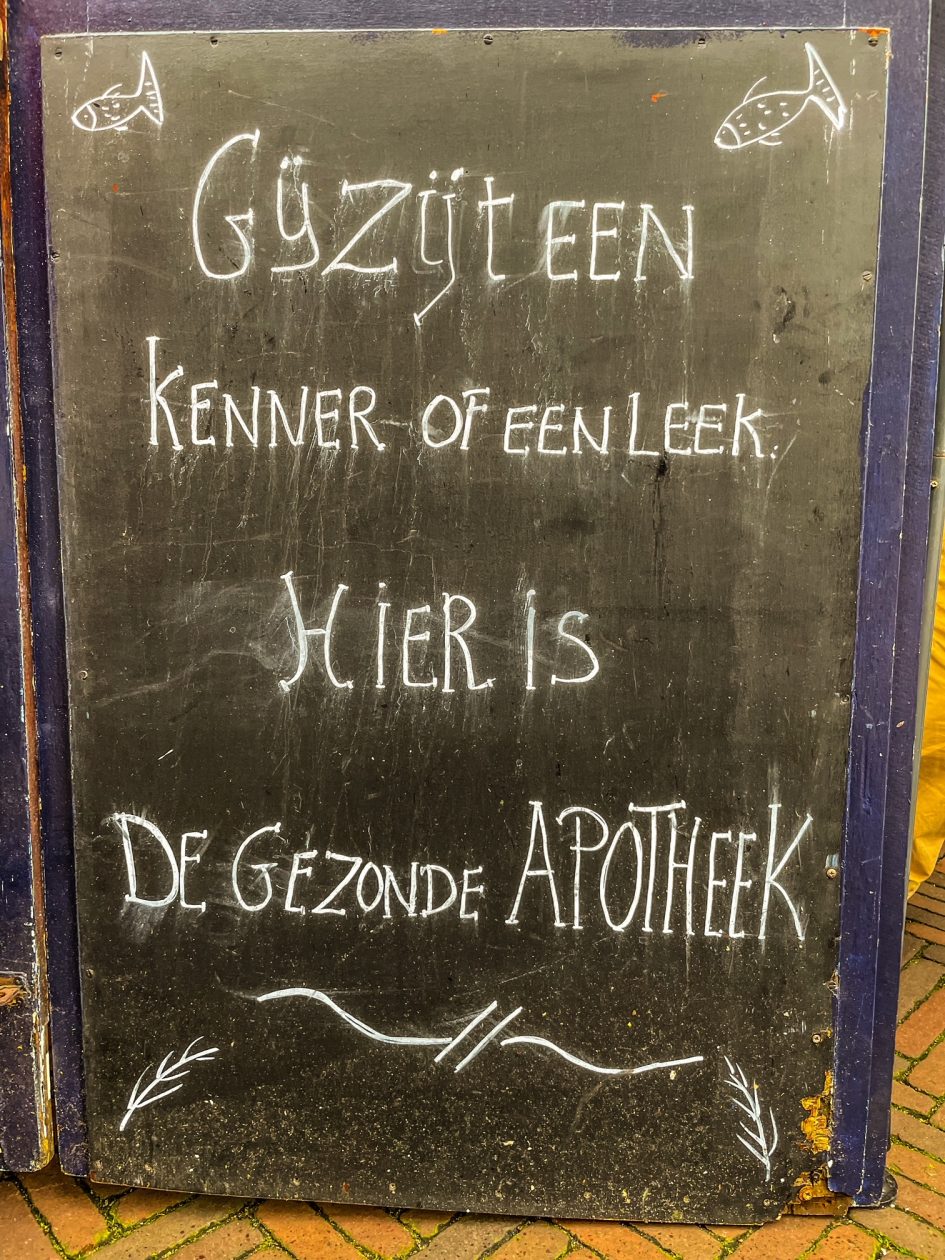 Gÿ zijt EEN
KENNER OF EEN LEEK.
HIER IS
DE GEZONDE APOTHEEK